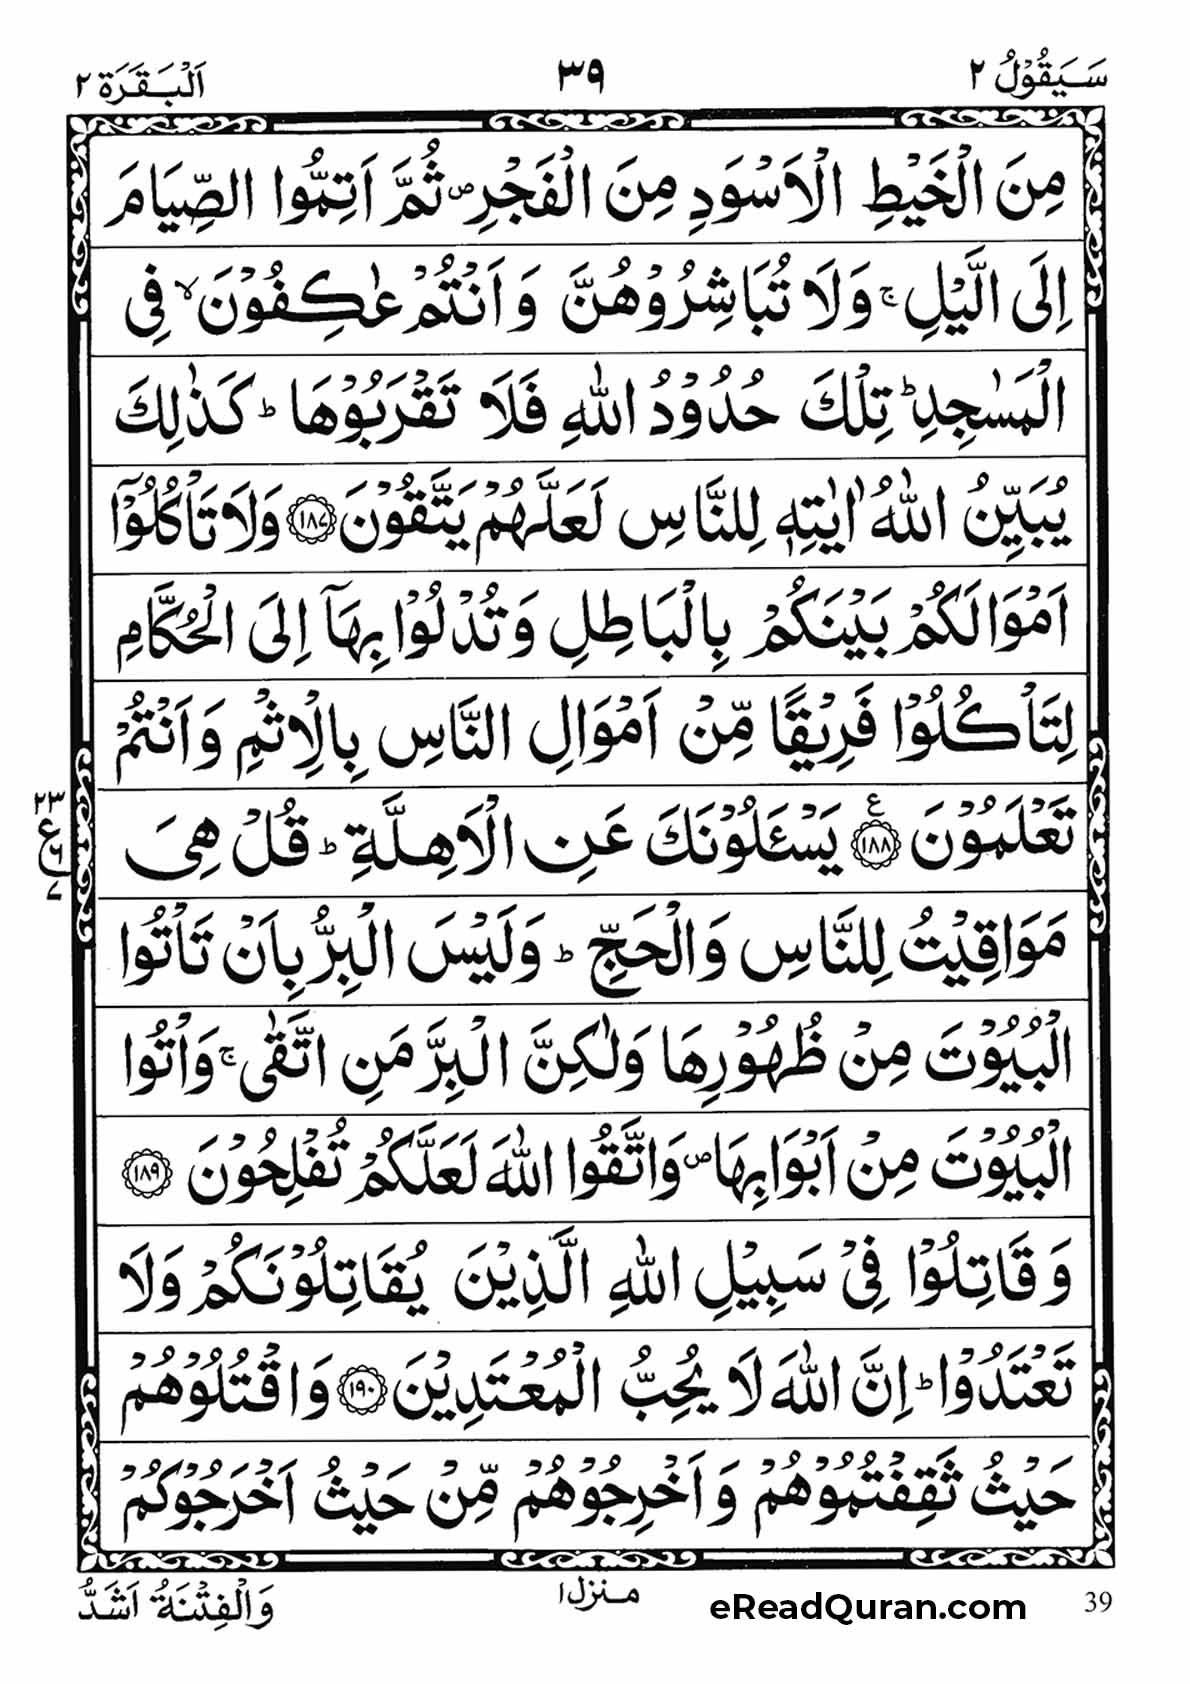 سَيَقُوْلُ ٢ ٣٩ اَلْبَقَرَة ٢
مِنَ الْخَيْطِ الْاَسْوَدِ مِنَ الْفَجْرِ ۪ ثُمَّ اَتِمُّوا الصِّيَامَ
اِلَى الَّيْلِ ۚ وَلَا تُبَاشِرُوْهُنَّ وَاَنْتُمْ عٰكِفُوْنَ ۙ فِى
الْمَسٰجِدِ ؕ تِلْكَ حُدُوْدُ اللّٰهِ فَلَا تَقْرَبُوْهَا ؕ كَذٰلِكَ
يُبَيِّنُ اللّٰهُ اٰيٰتِهٖ لِلنَّاسِ لَعَلَّهُمْ يَتَّقُوْنَ ۝١٨٧ وَلَا تَاْكُلُوْۤا
اَمْوَالَكُمْ بَيْنَكُمْ بِالْبَاطِلِ وَتُدْلُوْا بِهَاۤ اِلَى الْحُكَّامِ
لِتَاْكُلُوْا فَرِيْقًا مِّنْ اَمْوَالِ النَّاسِ بِالْاِثْمِ وَاَنْتُمْ
تَعْلَمُوْنَ ۝١٨٨ ع يَسْـَٔلُوْنَكَ عَنِ الْاَهِلَّةِ ؕ قُلْ هِىَ
٢٣
ع
٦
٧
مَوَاقِيْتُ لِلنَّاسِ وَالْحَجِّ ؕ وَلَيْسَ الْبِرُّ بِاَنْ تَاْتُوا
الْبُيُوْتَ مِنْ ظُهُوْرِهَا وَلٰكِنَّ الْبِرَّ مَنِ اتَّقٰى ۚ وَاْتُوا
الْبُيُوْتَ مِنْ اَبْوَابِهَا ۪ وَاتَّقُوا اللّٰهَ لَعَلَّكُمْ تُفْلِحُوْنَ ۝١٨٩
وَقَاتِلُوْا فِىْ سَبِيْلِ اللّٰهِ الَّذِيْنَ يُقَاتِلُوْنَكُمْ وَلَا
تَعْتَدُوْا ؕ اِنَّ اللّٰهَ لَا يُحِبُّ الْمُعْتَدِيْنَ ۝١٩٠ وَاقْتُلُوْهُمْ
حَيْثُ ثَقِفْتُمُوْهُمْ وَاَخْرِجُوْهُمْ مِّنْ حَيْثُ اَخْرَجُوْكُمْ
وَالْفِتْنَةُ اَشَدُّ
منزل ١
eReadQuran.com
39